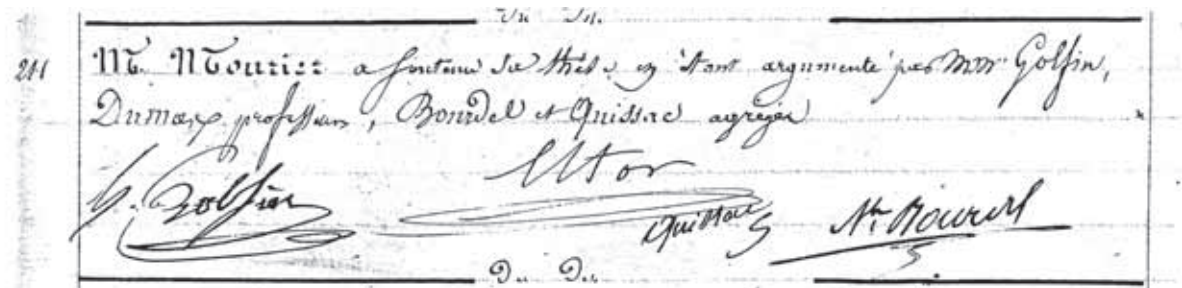 Du Du.
211 M. Mourier a soutenu sa thèse en étant argumenté par MM. Golfin,
Dumas, professeurs, Bourdel et Quissac agrégés
G. Golfin
Quissac
Bourdel
Du Du.